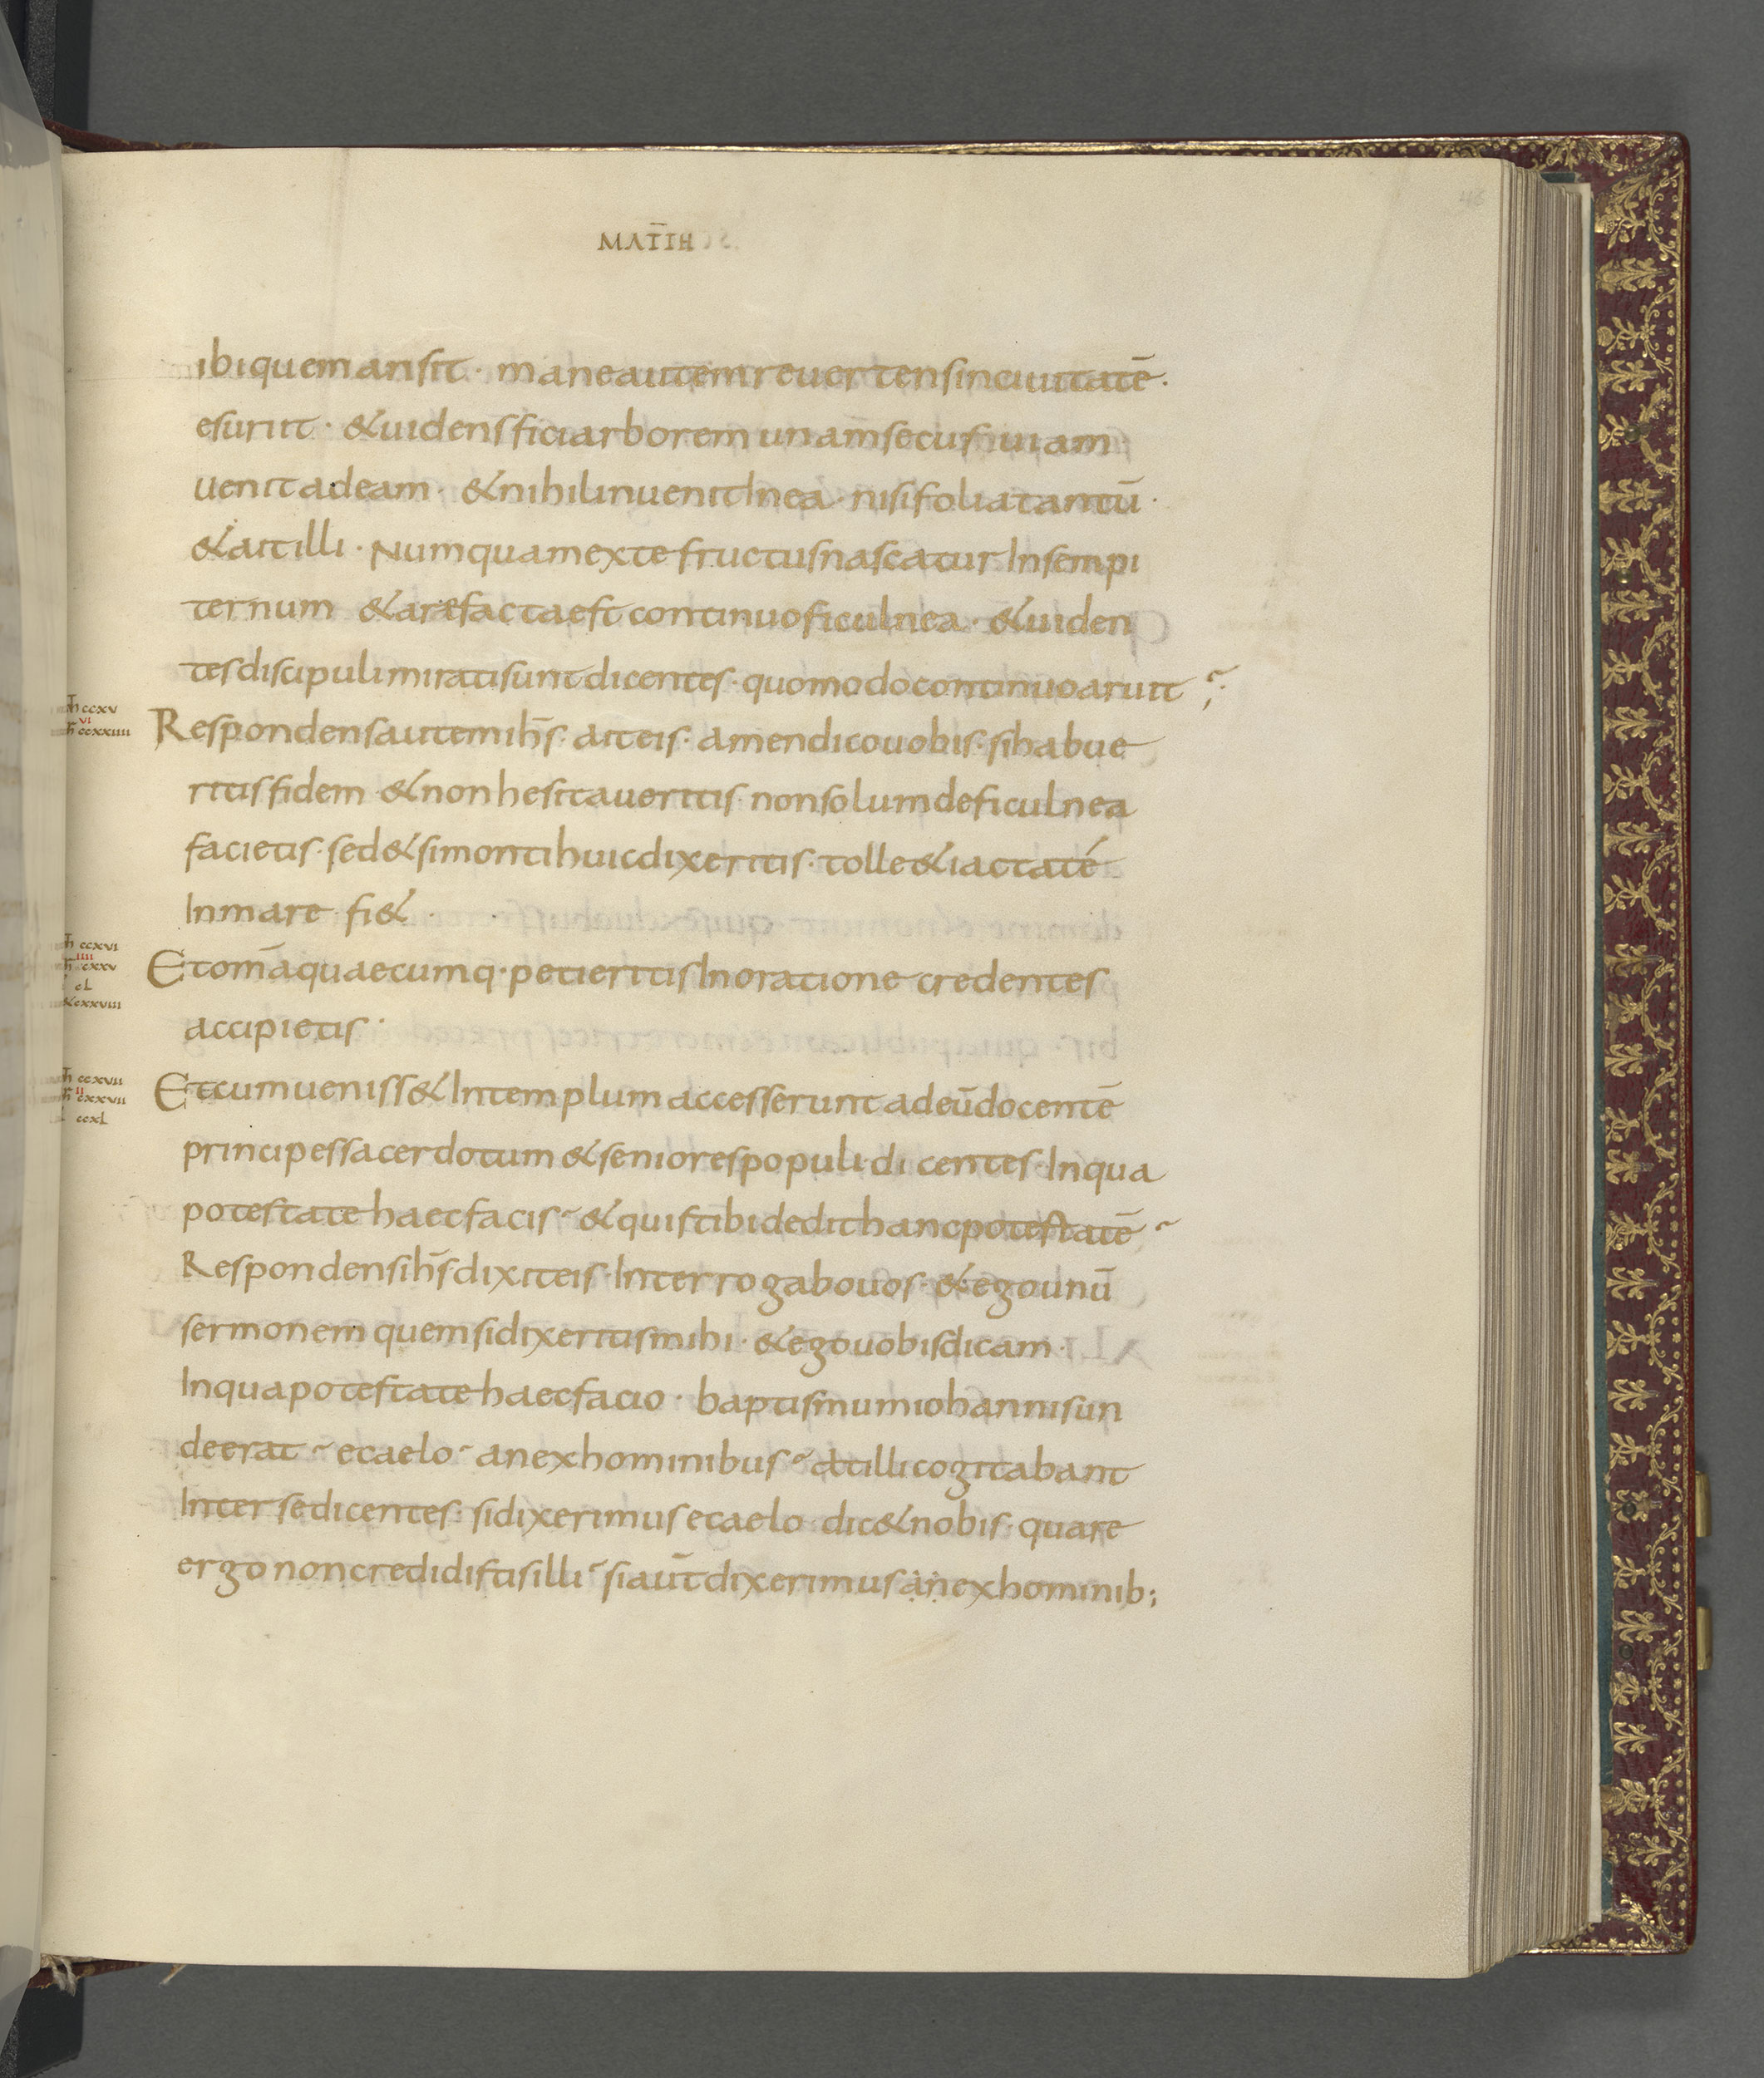 MAT̄TH
46
ibiquemansit · maneautemreuertensinciuitatē ·
esuriit · &uidensficiarboremunam̄secusuiam ·
uenitadeam · &nihilinuenitInea · nisifoliatantū ·
&aitilli · Numquamextefructusnascatur Insempi
ternum &arefactaestcontinuoficulnea · &uiden
tesdiscipulimiratisuntdicentes · quomodocontinuoaruit ;
mt̄h ccxv
vi
mr̄ ccxxiiii
Respondensautemih̄s · aiteis · amendicouobis · sihabue
ritisfidem · &nonhesitaueritis · nonsolumdeficulnea
facietis · sed&simontihuicdixeritis · tolle&iactaté
Inmare · fi& ·
ccxvi
iiii
cxxv
cL
cxxviii
Etom̄aquaecumq · petieritisInoratione credentes
accipietis ·
ccxvii
ii
cxxvii
ccxL
Etcumueniss& Intemplumaccesseruntadeūdocentē
principessacerdotum&seniorespopuli di centes · Inqua
potestatehaecfacis &quistibidedithancpotestatē
Respondensih̄sdixiteis · Interrogabouos · &egounū
sermonemquemsidixeritismihi · &egouobisdicam ·
Inquapotestatehaecfacio · baptismumiohannisun
deerat ecaelo anexhominibus atillicogitabant
Intersedicentes · sidixerimusecaelo · dic&nobis · quare
ergononcredidistisilli siaut̄dixerimusanexhominib;